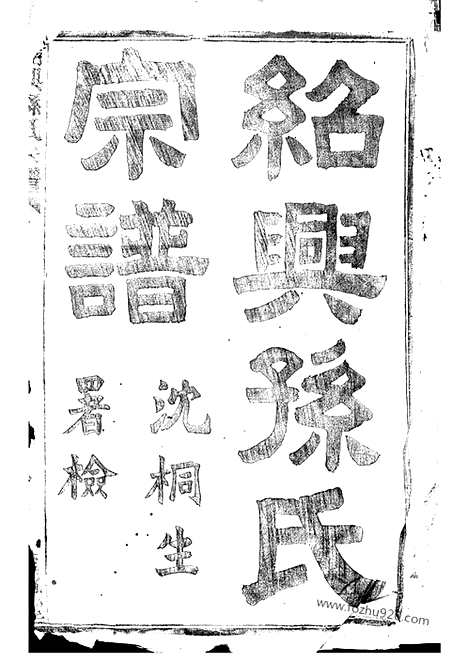 紹興孫氏
宗譜
沈桐生
署檢
www.fozhu920.com